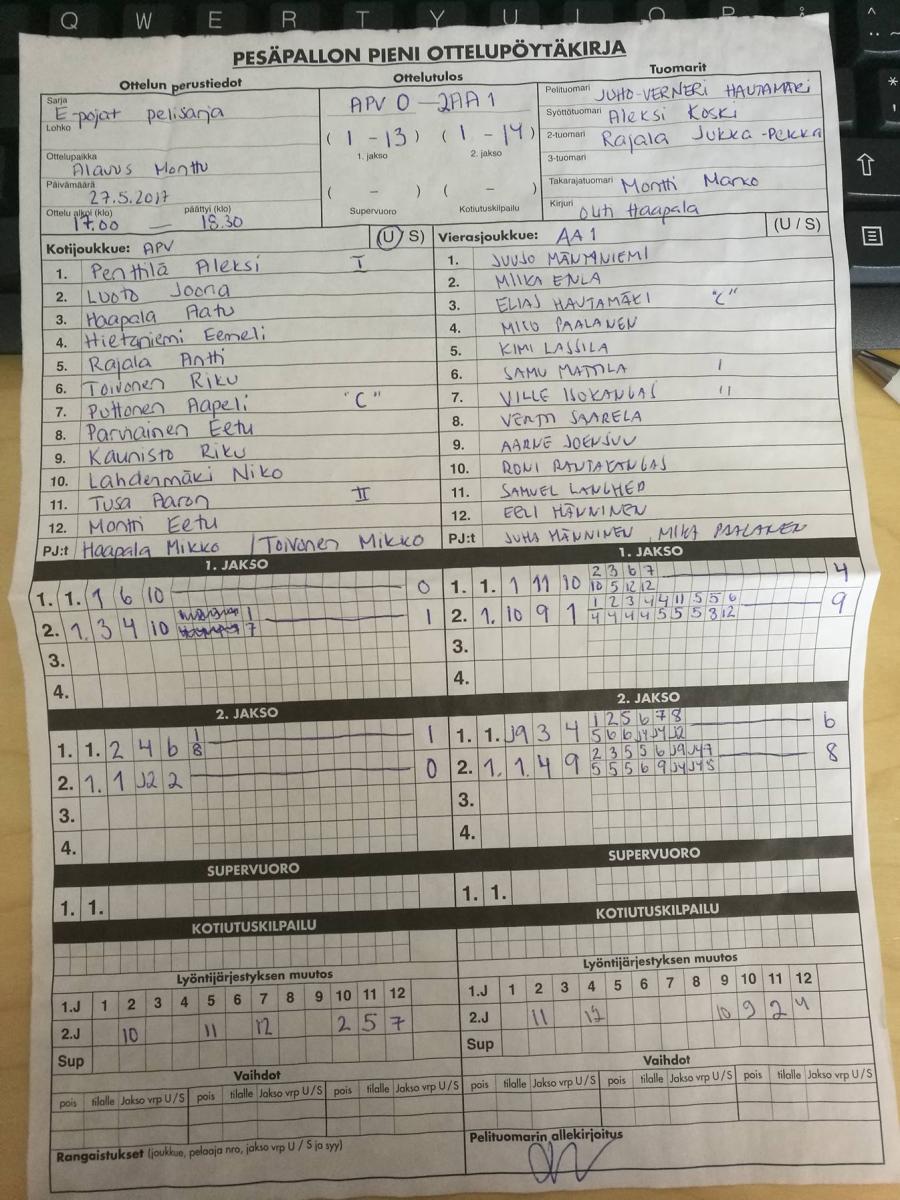 Q W E R T Y U I O P Å
PESÄPALLON PIENI OTTELUPÖYTÄKIRJA
Ottelun perustiedot
Sarja E-pojat pelisarja
Lohko
Ottelupaikka Alavus Monttu
Päivämäärä 27.5.2017
Ottelu alkoi (klo) 17.00 — päättyi (klo) 18.30
Ottelutulos
APV 0 - 2AA 1
( 1 - 13 ) ( 1 - 14 )
1. jakso 2. jakso
( - ) ( - )
Supervuoro Kotiutuskilpailu
Tuomarit
Pelituomari JUHO-VERNERI HAUTAMÄKI
Syöttötuomari Aleksi Koski
2-tuomari Rajala Jukka-Pekka
3-tuomari
Takarajatuomari Montti Marko
Kirjuri Outi Haapala
Kotijoukkue: APV (U/S)
1. Penttilä Aleksi I
2. Luoto Joona
3. Haapala Aatu
4. Hietaniemi Eemeli
5. Rajala Antti
6. Toivonen Riku
7. Puttonen Aapeli "C"
8. Parviainen Eetu
9. Kaunisto Riku
10. Lahdenmäki Niko
11. Tusa Aaron II
12. Montti Eetu
PJ:t Haapala Mikko / Toivonen Mikko
Vierasjoukkue: AA1 (U/S)
1. JUUJO MÄNTYNIEMI
2. MIIKA ENLA
3. ELIAS HAUTAMÄKI "C"
4. MICO PAALANEN
5. KIMI LASSILA
6. SAMU MATTILA I
7. VILLE ISOKANGAS II
8. VERTTI SAARELA
9. AARNE JOENSUU
10. RONI RANTAKANGAS
11. SAMUEL LANGHED
12. EELI MÄNNINEN
PJ:t JUHA MÄNNINEN, MIKA PAALANEN
1. JAKSO
1. 1. 1 6 10 0
2. 1. 3 4 10 1 7 1
3.
4.
1. JAKSO
2 3 6 7
1. 1. 1 11 10 4
10 5 12 12
1 2 3 4 4 11 5 5 6
2. 1. 10 9 1 9
4 4 4 4 5 5 5 8 12
3.
4.
2. JAKSO
1. 1. 2 4 6 1 8 1
2. 1. 1 J2 2 0
3.
4.
2. JAKSO
1 2 5 6 7 8
1. 1. J9 3 4 6
5 6 6 J4 J4 J2
2 3 5 5 6 J9 J4 7
2. 1. 1. 4 9 8
5 5 5 6 9 J4 J4 5
3.
4.
SUPERVUORO
1. 1.
SUPERVUORO
1. 1.
KOTIUTUSKILPAILU
KOTIUTUSKILPAILU
Lyöntijärjestyksen muutos
1.J 1 2 3 4 5 6 7 8 9 10 11 12
2.J 10 11 12 2 5 7
Sup
Lyöntijärjestyksen muutos
1.J 1 2 3 4 5 6 7 8 9 10 11 12
2.J 11 12 10 9 2 4
Sup
Vaihdot
pois tilalle Jakso vrp U/S pois tilalle Jakso vrp U/S pois tilalle Jakso vrp U/S
Vaihdot
pois tilalle Jakso vrp U/S pois tilalle Jakso vrp U/S pois tilalle Jakso vrp U/S
Rangaistukset (joukkue, pelaaja nro, jakso vrp U / S ja syy)
Pelituomarin allekirjoitus